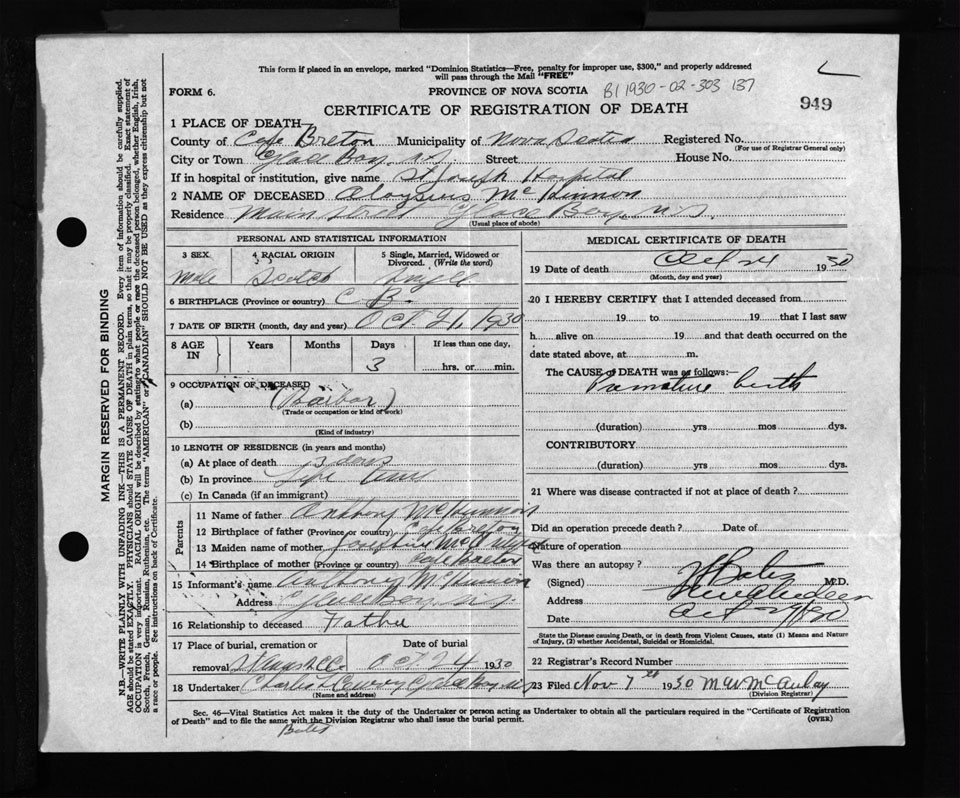 This form if placed in an envelope, marked "Dominion Statistics—Free, penalty for improper use, $300," and properly addressed
will pass through the Mail "FREE"
FORM 6.
PROVINCE OF NOVA SCOTIA
B1 1930-02-303 137
949
CERTIFICATE OF REGISTRATION OF DEATH
1 PLACE OF DEATH—
County of Cape Breton Municipality of Nova Scotia Registered No.
(For use of Registrar General only)
City or Town Glace Bay. N.S. Street House No.
If in hospital or institution, give name St Joseph Hospital
2 NAME OF DECEASED Aloysius McKinnon
Residence Main Street Glace Bay. N.S.
(Usual place of abode)
PERSONAL AND STATISTICAL INFORMATION
3 SEX 4 RACIAL ORIGIN 5 Single, Married, Widowed or
Divorced. (Write the word)
Male Scotch Single
6 BIRTHPLACE (Province or country) C. B.
7 DATE OF BIRTH (month, day and year) Oct. 21, 1930
8 AGE IN Years Months Days If less than one day,
3 hrs. or min.
9 OCCUPATION OF DECEASED
(a)
(Trade or occupation or kind of work)
(b)
(Kind of industry)
10 LENGTH OF RESIDENCE (in years and months)
(a) At place of death 3 days
(b) In province Life
(c) In Canada (if an immigrant)
Parents
11 Name of father Anthony McKinnon
12 Birthplace of father (Province or country) Cape Breton
13 Maiden name of mother Josephine
14 Birthplace of mother (Province or country) Cape Breton
15 Informant's name Anthony McKinnon
Address Glace Bay. N.S.
16 Relationship to deceased Father
17 Place of burial, cremation or Date of burial
removal Oct. 24 1930
18 Undertaker Charles Glace Bay N.S.
(Name and address)
MEDICAL CERTIFICATE OF DEATH
19 Date of death Oct 24 1930
(Month, day and year)
20 I HEREBY CERTIFY that I attended deceased from
19 to 19 that I last saw
h alive on 19 and that death occurred on the
date stated above, at m.
The CAUSE of DEATH was as follows:—
Premature birth
(duration) yrs mos dys.
CONTRIBUTORY
(duration) yrs mos dys.
21 Where was disease contracted if not at place of death?
Did an operation precede death? Date of
Nature of operation
Was there an autopsy?
(Signed) Bates M.D.
Address New Aberdeen
Date
State the Disease causing Death, or in death from Violent Causes, state (1) Means and Nature
of Injury, (2) whether Accidental, Suicidal or Homicidal.
22 Registrar's Record Number
23 Filed Nov 7th 1930 M W McAulay
(Division Registrar)
Sec. 46—Vital Statistics Act makes it the duty of the Undertaker or person acting as Undertaker to obtain all the particulars required in the "Certificate of Registration
of Death" and to file the same with the Division Registrar who shall issue the burial permit.
(OVER)
Bates
MARGIN RESERVED FOR BINDING
N.B.—WRITE PLAINLY WITH UNFADING INK—THIS IS A PERMANENT RECORD. Every item of information should be carefully supplied.
AGE should be stated EXACTLY. PHYSICIANS should STATE CAUSE OF DEATH in plain terms, so that it may be properly classified. Exact statement of
OCCUPATION is very important. RACIAL ORIGIN will be described by stating to what people or race the deceased person belonged, whether English, Irish,
Scotch, French, German, Russian, Ruthenian, etc. The terms "AMERICAN" or "CANADIAN" SHOULD NOT BE USED as they express citizenship but not
a race or people. See instructions on back of Certificate.